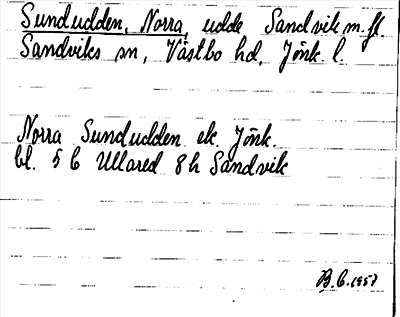 Sundudden, Norra, udde Sandvik m.fl.
Sandviks sn, Västbo hd, Jönk. l.
Norra Sundudden ek. Jönk.
bl. 5 b Ullared 8 h Sandvik
B.C. 1957